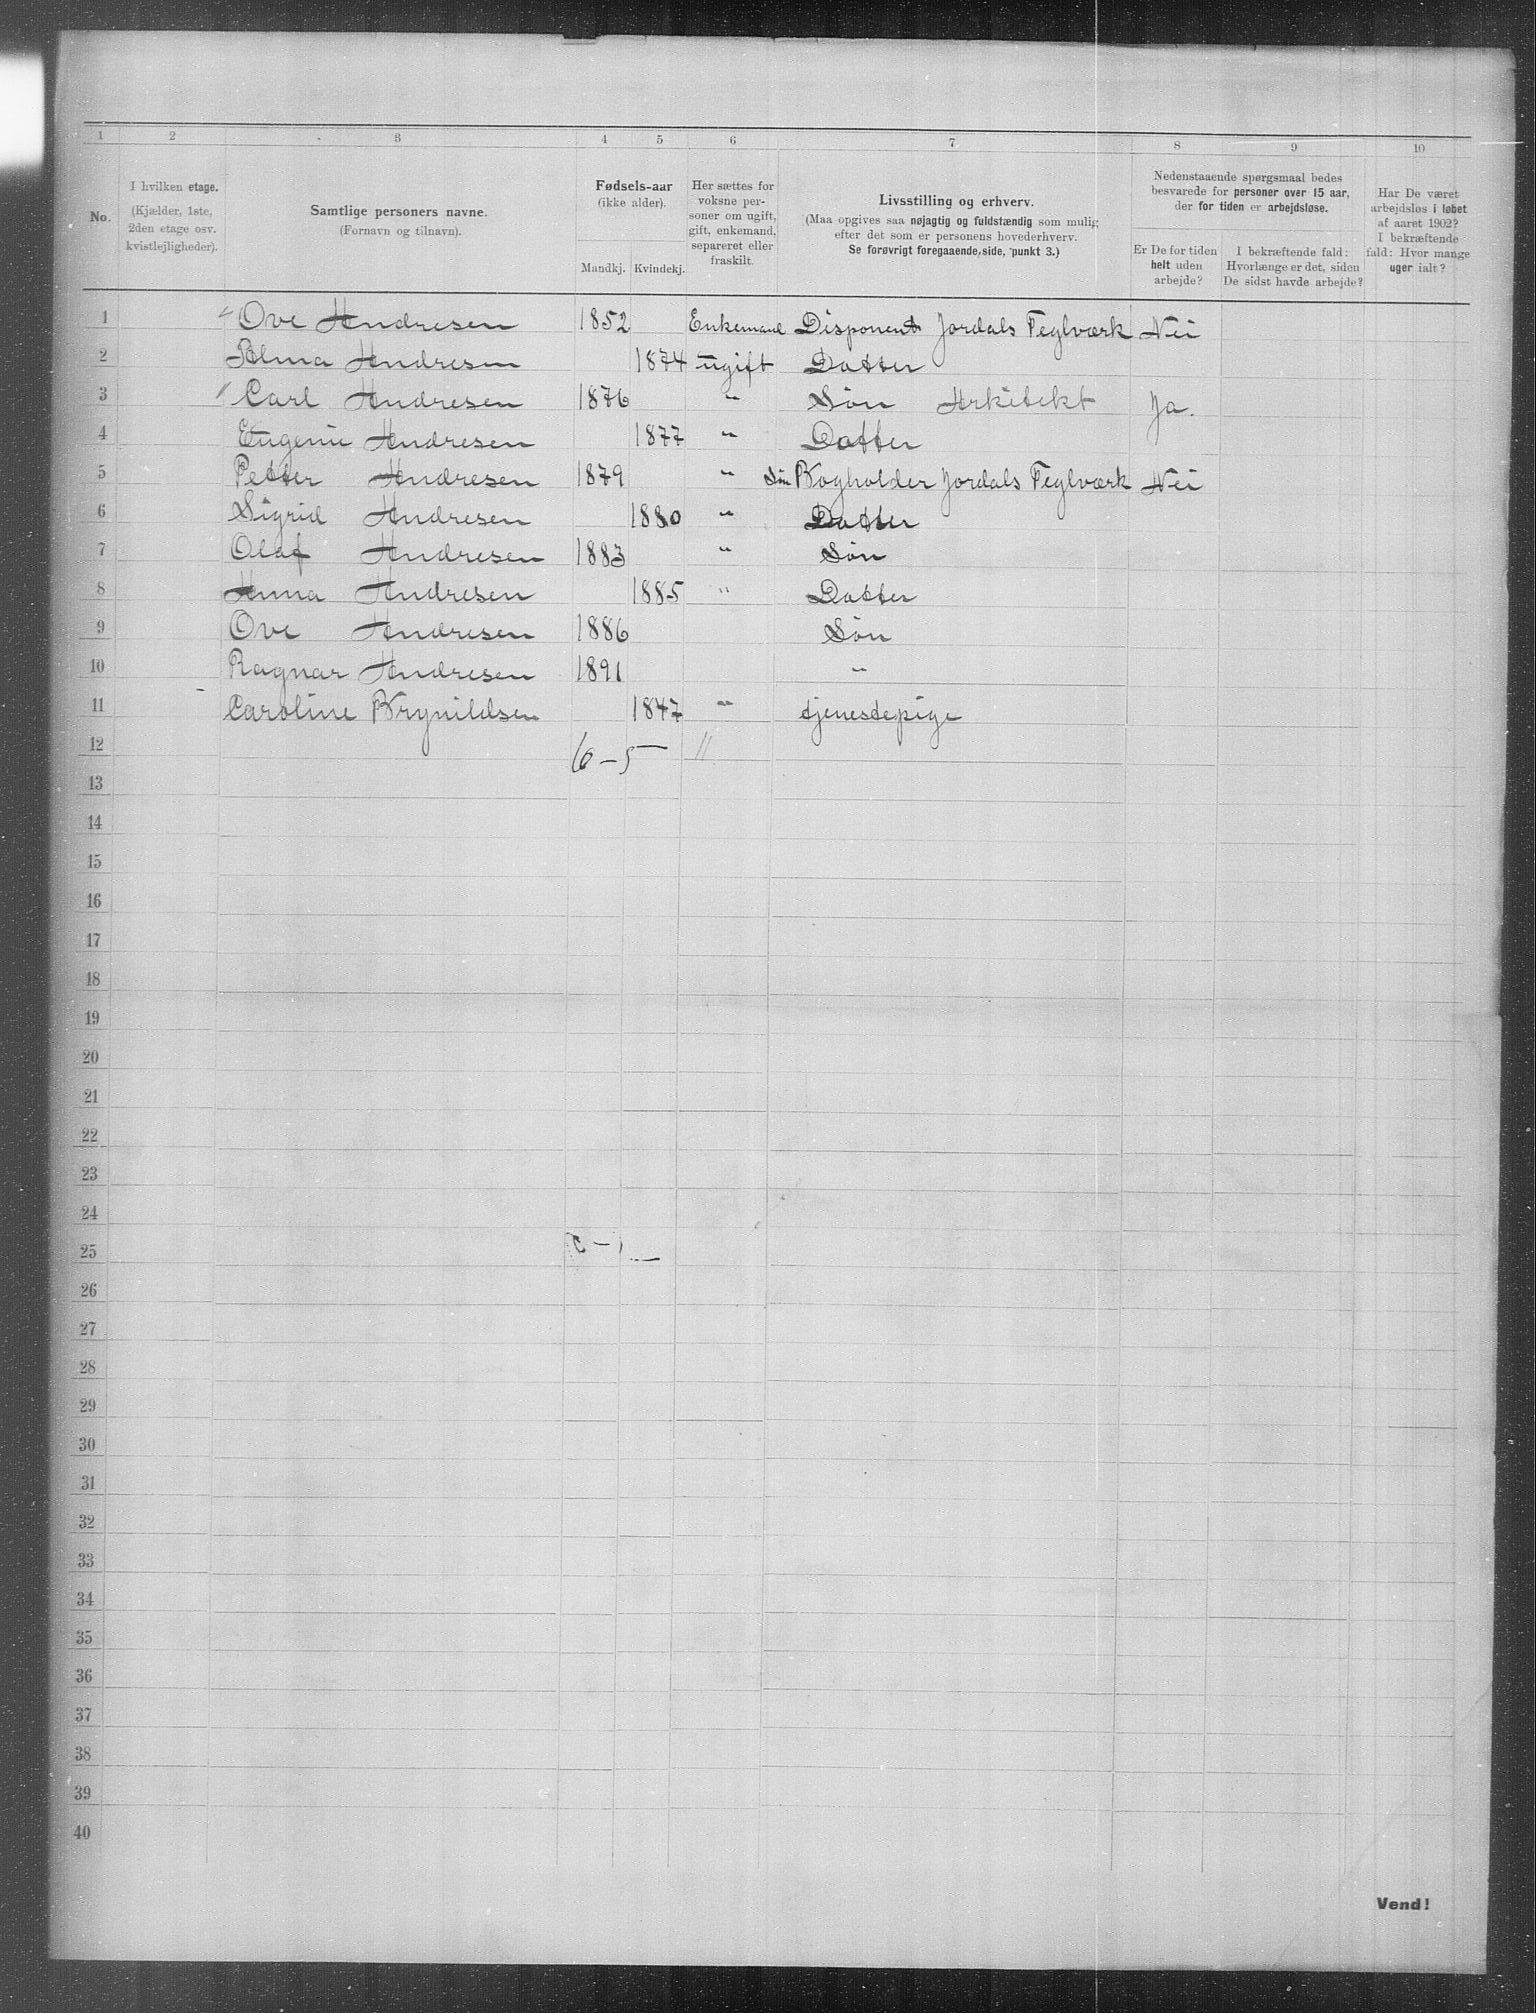 1 2 3 4 5 6 7 8 9 10
No.
I hvilken etage.
(Kjælder, 1ste,
2den etage osv.
kvistlejligheder).
Samtlige personers navne.
(Fornavn og tilnavn).
Fødsels-aar
(ikke alder).
Mandkj. Kvindekj.
Her sættes for
voksne per-
soner om ugift,
gift, enkemand,
separeret eller
fraskilt.
Livsstilling og erhverv.
(Maa opgives saa nøjagtig og fuldstændig som mulig
efter det som er personens hovederhverv.
Se forøvrigt foregaaende side, punkt 3.)
Nedenstaaende spørgsmaal bedes
besvarede for personer over 15 aar,
der for tiden er arbejdsløse.
Er De for tiden
helt uden
arbejde?
I bekræftende fald:
Hvorlænge er det, siden
De sidst havde arbejde?
Har De været
arbejdsløs i løbet
af aaret 1902?
I bekræftende
fald: Hvor mange
uger ialt?
1 Ove Andresen 1852 Enkemand Disponent Jordals Teglværk Nei
2 Alma Andresen 1874 ugift Datter
3 Carl Andresen 1876 " Søn Arkitekt Ja.
4 Eugenie Andresen 1877 " Datter
5 Petter Andresen 1879 " Søn Bogholder Jordals Teglværk Nei
6 Sigrid Andresen 1880 " Datter
7 Olaf Andresen 1883 " Søn
8 Anna Andresen 1885 " Datter
9 Ove Andresen 1886 Søn
10 Ragnar Andresen 1891 "
11 Caroline Brynildsen 1847 " tjenestepige
12 6 - 5 "
13
14
15
16
17
18
19
20
21
22
23
24
25
26
27
28
29
30
31
32
33
34
35
36
37
38
39
40
Vend!